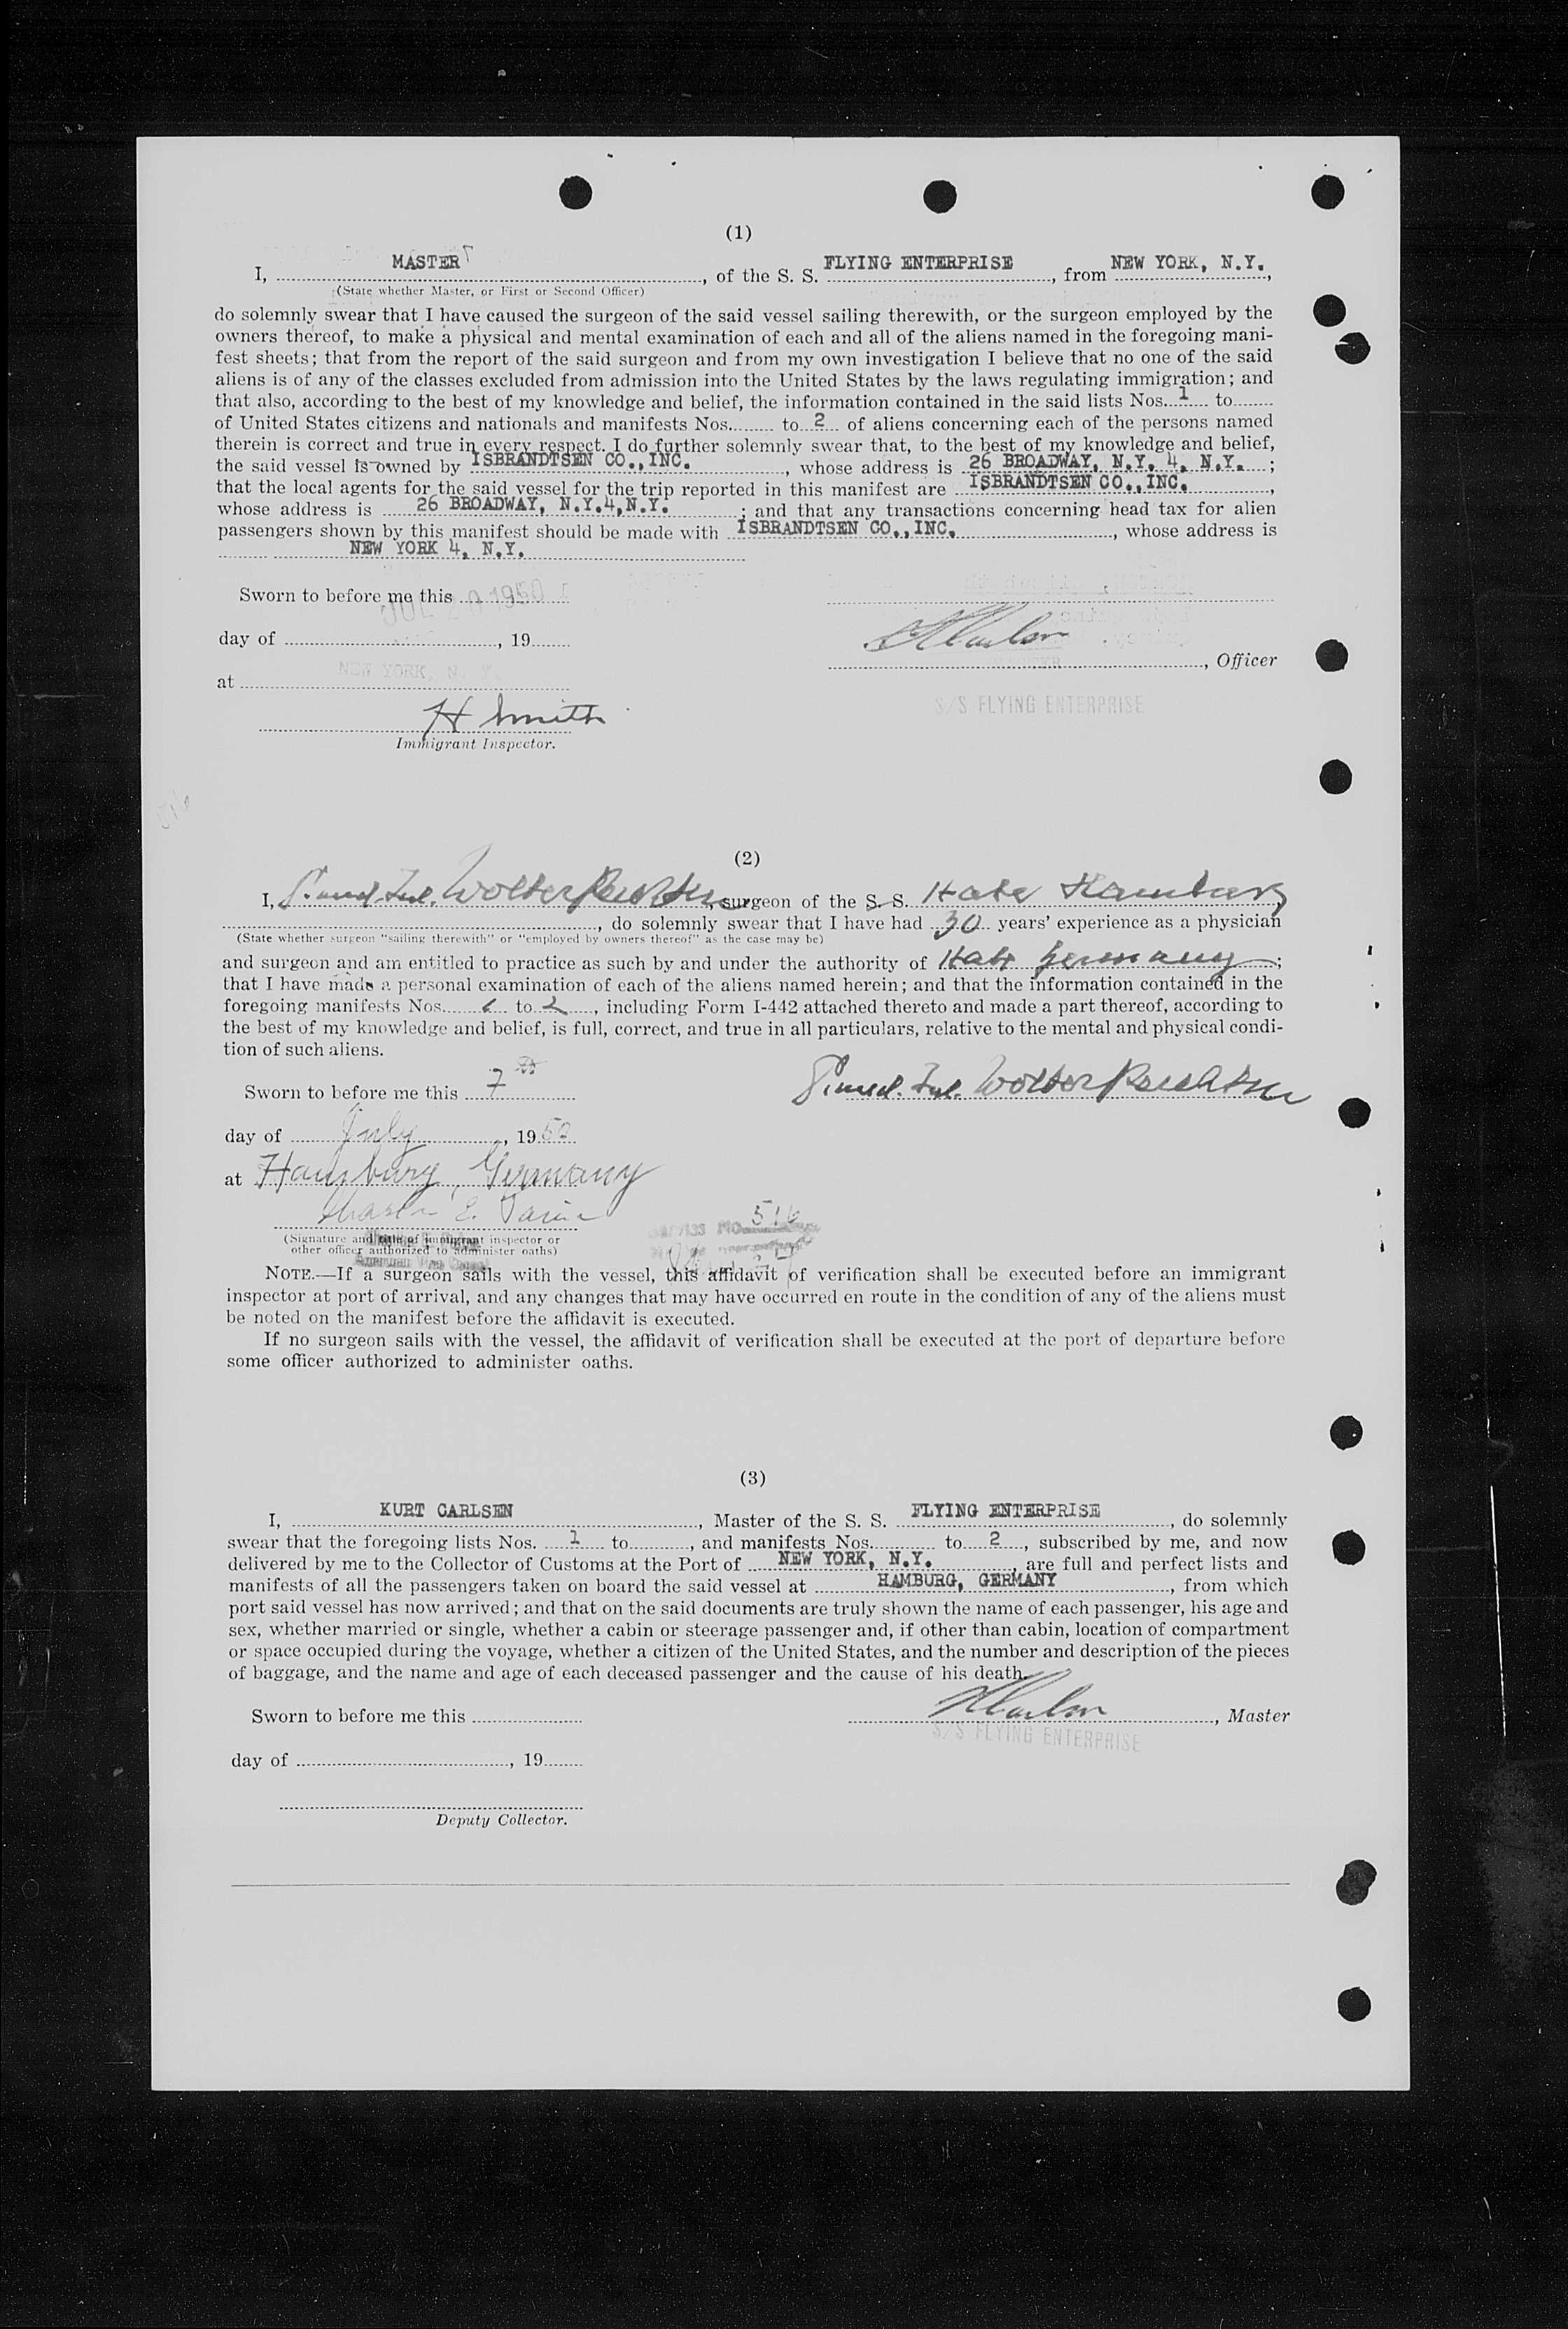 (1)
I, MASTER, of the S. S. FLYING ENTERPRISE, from NEW YORK, N.Y.,
(State whether Master, or First or Second Officer)
do solemnly swear that I have caused the surgeon of the said vessel sailing therewith, or the surgeon employed by the
owners thereof, to make a physical and mental examination of each and all of the aliens named in the foregoing mani-
fest sheets; that from the report of the said surgeon and from my own investigation I believe that no one of the said
aliens is of any of the classes excluded from admission into the United States by the laws regulating immigration; and
that also, according to the best of my knowledge and belief, the information contained in the said lists Nos. 1 to
of United States citizens and nationals and manifests Nos. to 2 of aliens concerning each of the persons named
therein is correct and true in every respect. I do further solemnly swear that, to the best of my knowledge and belief,
the said vessel is owned by ISBRANDTSEN CO.,INC., whose address is 26 BROADWAY, N.Y. 4, N.Y.;
that the local agents for the said vessel for the trip reported in this manifest are ISBRANDTSEN CO.,INC.,
whose address is 26 BROADWAY, N.Y.4,N.Y.; and that any transactions concerning head tax for alien
passengers shown by this manifest should be made with ISBRANDTSEN CO.,INC., whose address is
NEW YORK 4, N.Y.
Sworn to before me this JUL 20 1950
day of , 19
, Officer
at NEW YORK, N. Y.
S/S FLYING ENTERPRISE
H Smith
Immigrant Inspector.
516
(2)
I, , surgeon of the S. S. Hamburg
, do solemnly swear that I have had 30 years' experience as a physician
(State whether surgeon "sailing therewith" or "employed by owners thereof" as the case may be)
and surgeon and am entitled to practice as such by and under the authority of Germany;
that I have made a personal examination of each of the aliens named herein; and that the information contained in the
foregoing manifests Nos. to 2, including Form I-442 attached thereto and made a part thereof, according to
the best of my knowledge and belief, is full, correct, and true in all particulars, relative to the mental and physical condi-
tion of such aliens.
Sworn to before me this 7th
day of July, 1950
at Hamburg, Germany
516
(Signature and title of immigrant inspector or
other officer authorized to administer oaths)
NOTE.—If a surgeon sails with the vessel, this affidavit of verification shall be executed before an immigrant
inspector at port of arrival, and any changes that may have occurred en route in the condition of any of the aliens must
be noted on the manifest before the affidavit is executed.
If no surgeon sails with the vessel, the affidavit of verification shall be executed at the port of departure before
some officer authorized to administer oaths.
(3)
I, KURT CARLSEN, Master of the S. S. FLYING ENTERPRISE, do solemnly
swear that the foregoing lists Nos. 1 to , and manifests Nos. to 2, subscribed by me, and now
delivered by me to the Collector of Customs at the Port of NEW YORK, N.Y., are full and perfect lists and
manifests of all the passengers taken on board the said vessel at HAMBURG, GERMANY, from which
port said vessel has now arrived; and that on the said documents are truly shown the name of each passenger, his age and
sex, whether married or single, whether a cabin or steerage passenger and, if other than cabin, location of compartment
or space occupied during the voyage, whether a citizen of the United States, and the number and description of the pieces
of baggage, and the name and age of each deceased passenger and the cause of his death.
Sworn to before me this
, Master
S/S FLYING ENTERPRISE
day of , 19
Deputy Collector.